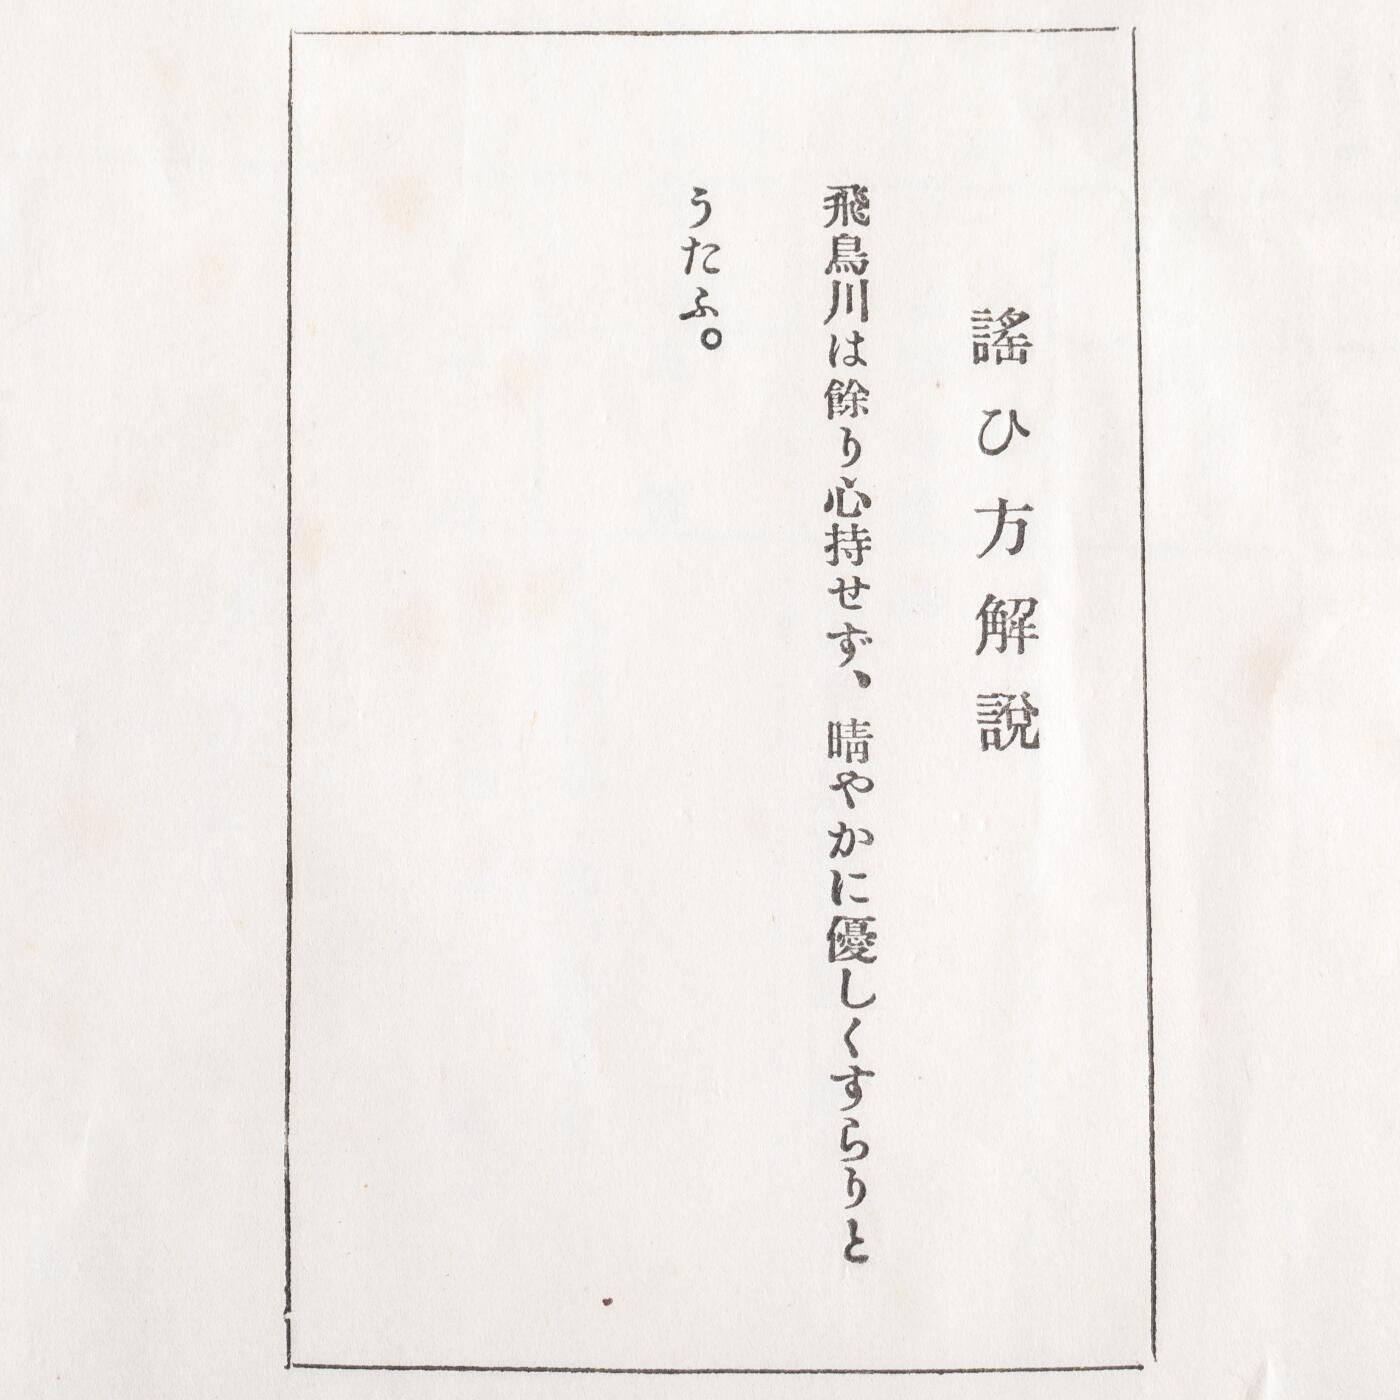 謠ひ方解說
飛鳥川は餘り心持せず、晴やかに優しくすらりと
うたふ。